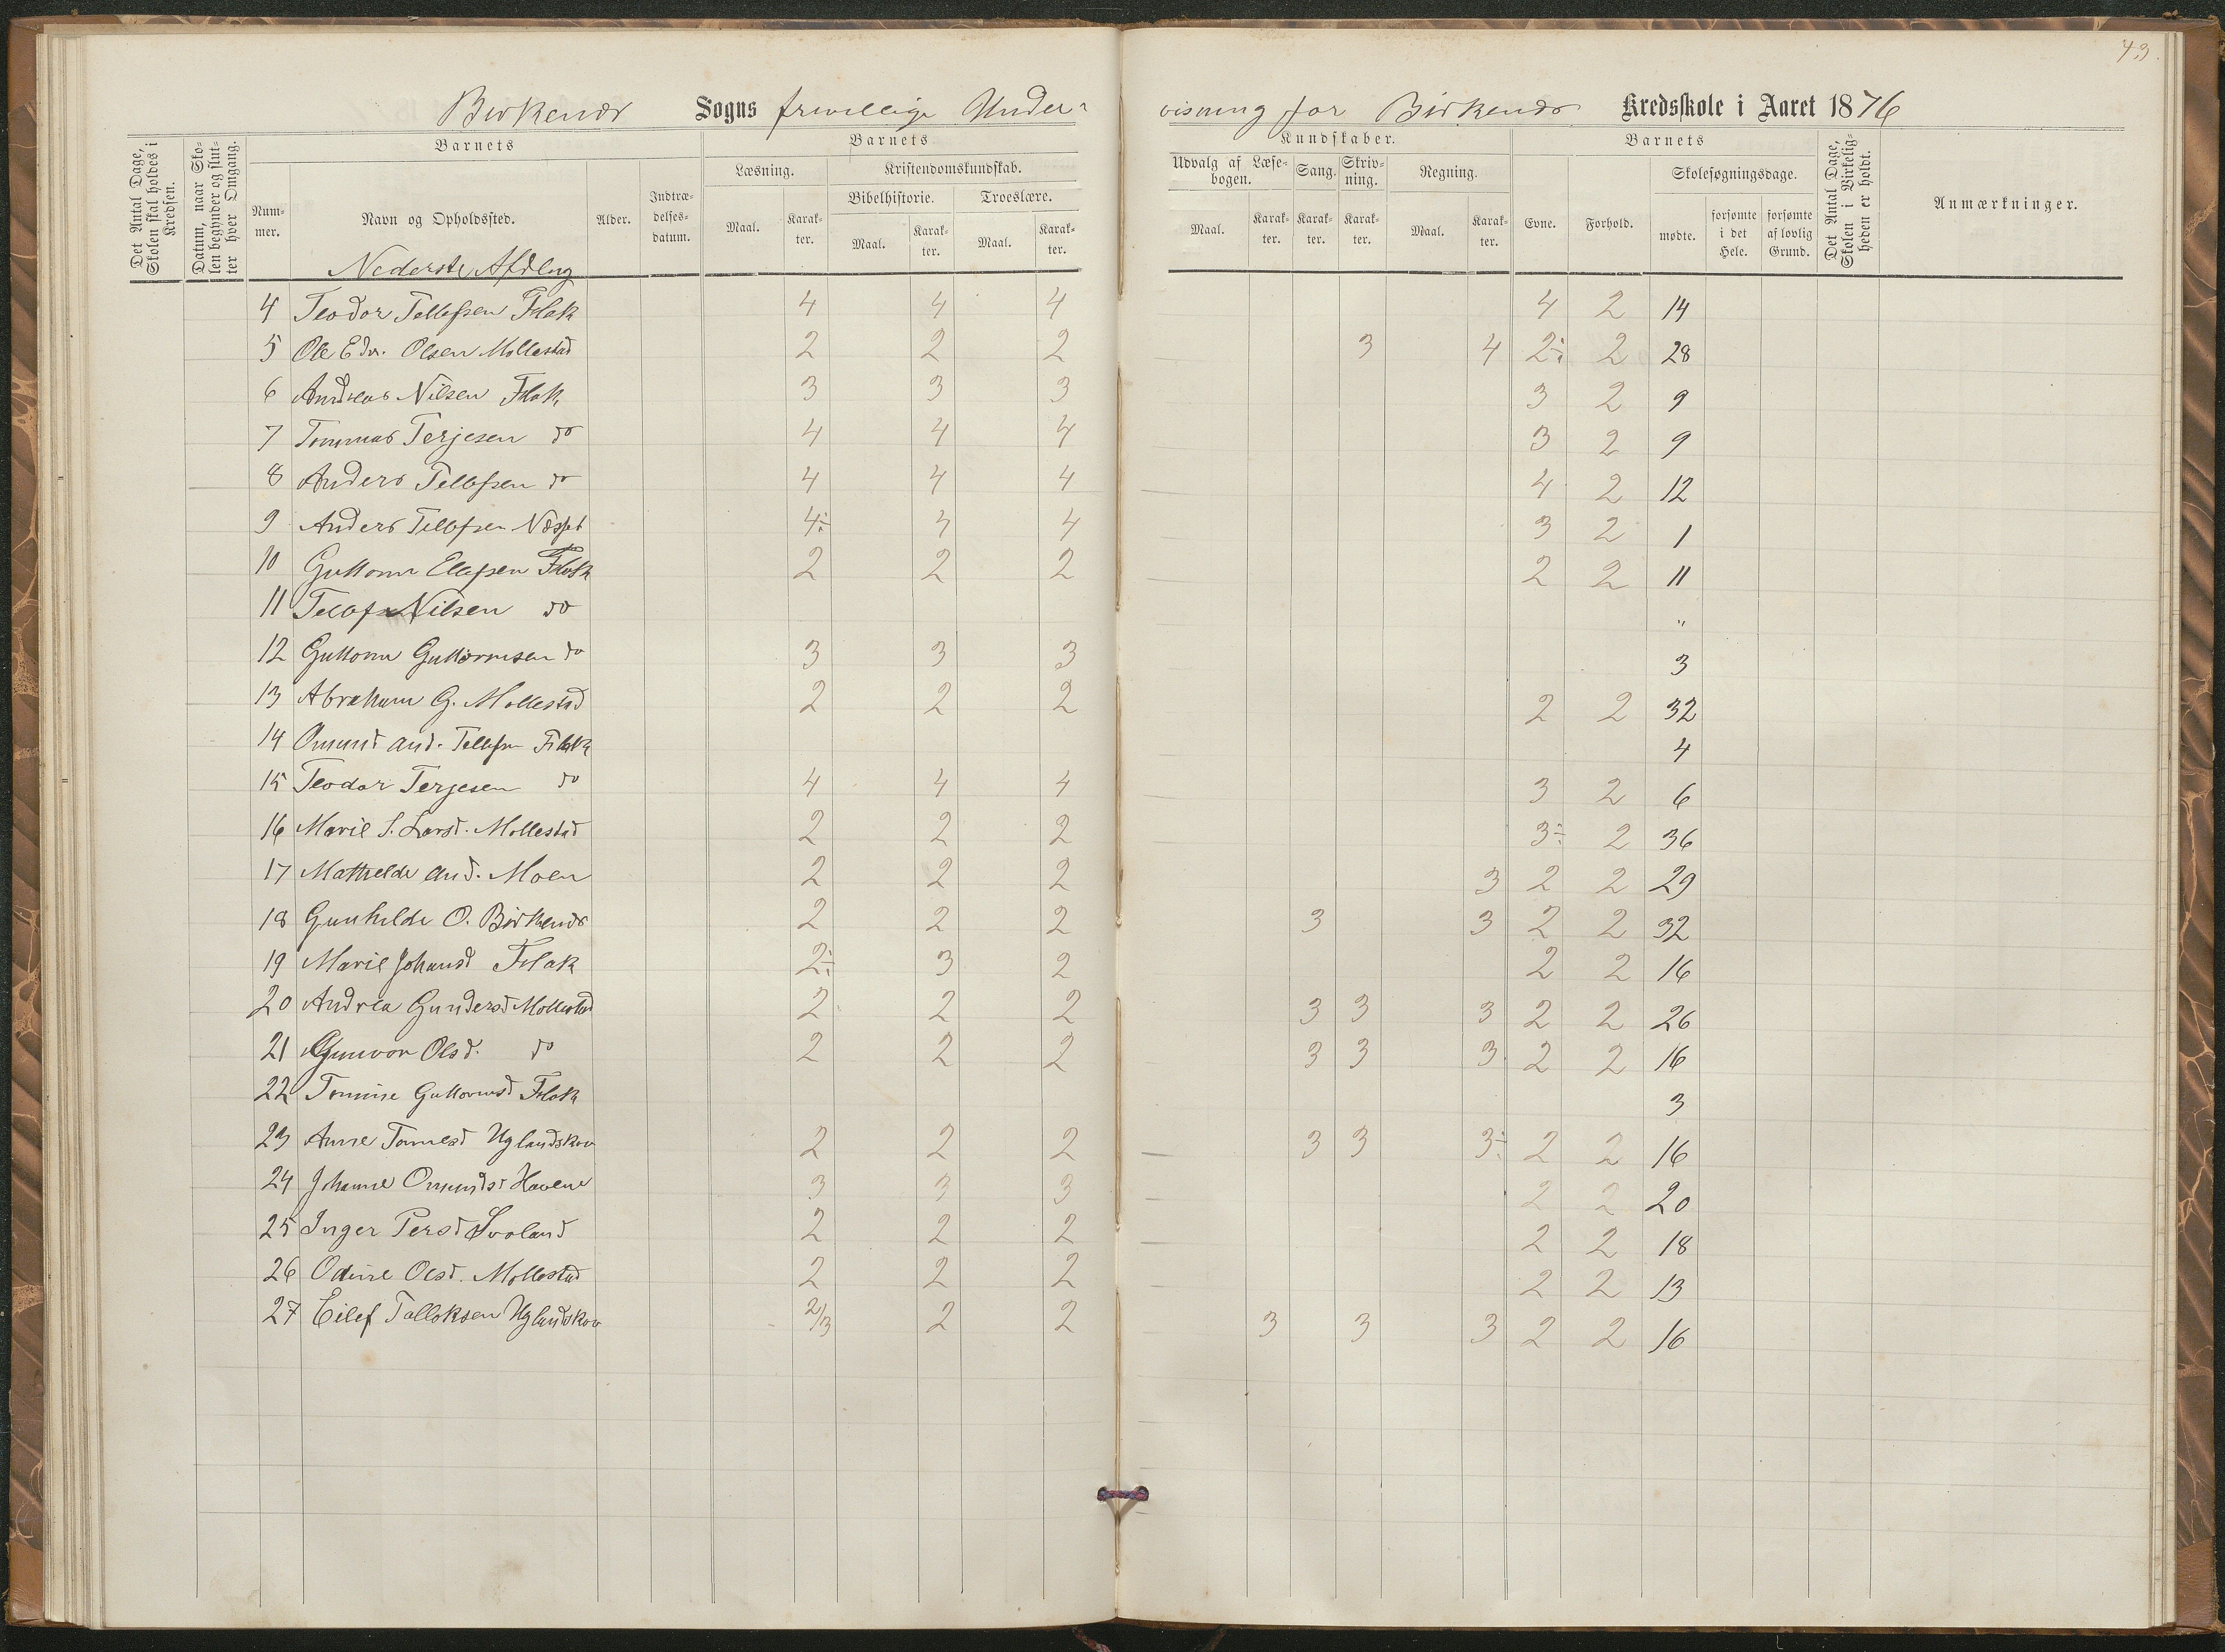 43.
Birkenær Sogns frivillige Under- visning for Birkenæs Kredsskole i Aaret 1876
Det Antal Dage, Skolen skal holdes i Kredsen.
Datum, naar Skolen begynder og slutter hver Omgang.
Barnets
Nummer.
Navn og Opholdssted.
Alder.
Indtrædelsesdatum.
Barnets
Læsning.
Maal.
Karakter.
Kristendomskundskab.
Bibelhistorie.
Maal.
Karakter.
Troeslære.
Maal.
Karakter.
Kundskaber.
Udvalg af Læsebogen.
Maal.
Karakter.
Sang.
Karakter.
Skrivning.
Karakter.
Regning.
Maal.
Karakter.
Barnets
Evne.
Forhold.
Skolesøgningsdage.
mødte.
forsømte i det Hele.
forsømte af lovlig Grund.
Det Antal Dage, Skolen i Virkeligheden er holdt.
Anmærkninger.
Nederste Afdlng
4 Teodor Tellefsen Flak 4 4 4 4 2 14
5 Ole Edv. Olsen Mollestad 2 2 2 3 4 2÷ 2 28
6 Andreas Nilsen Flak 3 3 3 3 2 9
7 Tommas Terjesen do 4 4 4 3 2 9
8 Anders Tellefsen do 4 4 4 4 2 12
9 Anders Tellefsen 4÷ 4 4 3 2 1
10 Guttorm Ellefsen Flak 2 2 2 2 2 11
11 Tellef Nilsen do "
12 Guttorm Guttormsen do 3 3 3 3
13 Abraham G. Mollestad 2 2 2 2 2 32
14 Omund And. Tellefsen Flak 4
15 Teodor Terjesen do 4 4 4 3 2 6
16 Marie S. Larsd. Mollestad 2 2 2 3÷ 2 36
17 Mathilde And. Moen 2 2 2 3 2 2 29
18 Gunhilde O. Birkenæs 2 2 2 3 3 2 2 32
19 Marie Johansd Flak 2÷ 3 2 2 2 16
20 Andrea Gundersd Mollestad 2 2 2 3 3 3 2 2 26
21 Gunvor Olsd. do 2 2 2 3 3 3 2 2 16
22 Tomine Guttormsd Flak 3
23 Anne Tomesd Uglandskov 2 2 2 3 3 3÷ 2 2 16
24 Johanne Omundsd Havene 3 3 3 2 2 20
25 Inger Persd Svaland 2 2 2 2 2 18
26 Odine Olsd. Mollestad 2 2 2 2 2 13
27 Eilef Salloksen Uglandskov 2/3 2 2 3 3 3 2 2 16